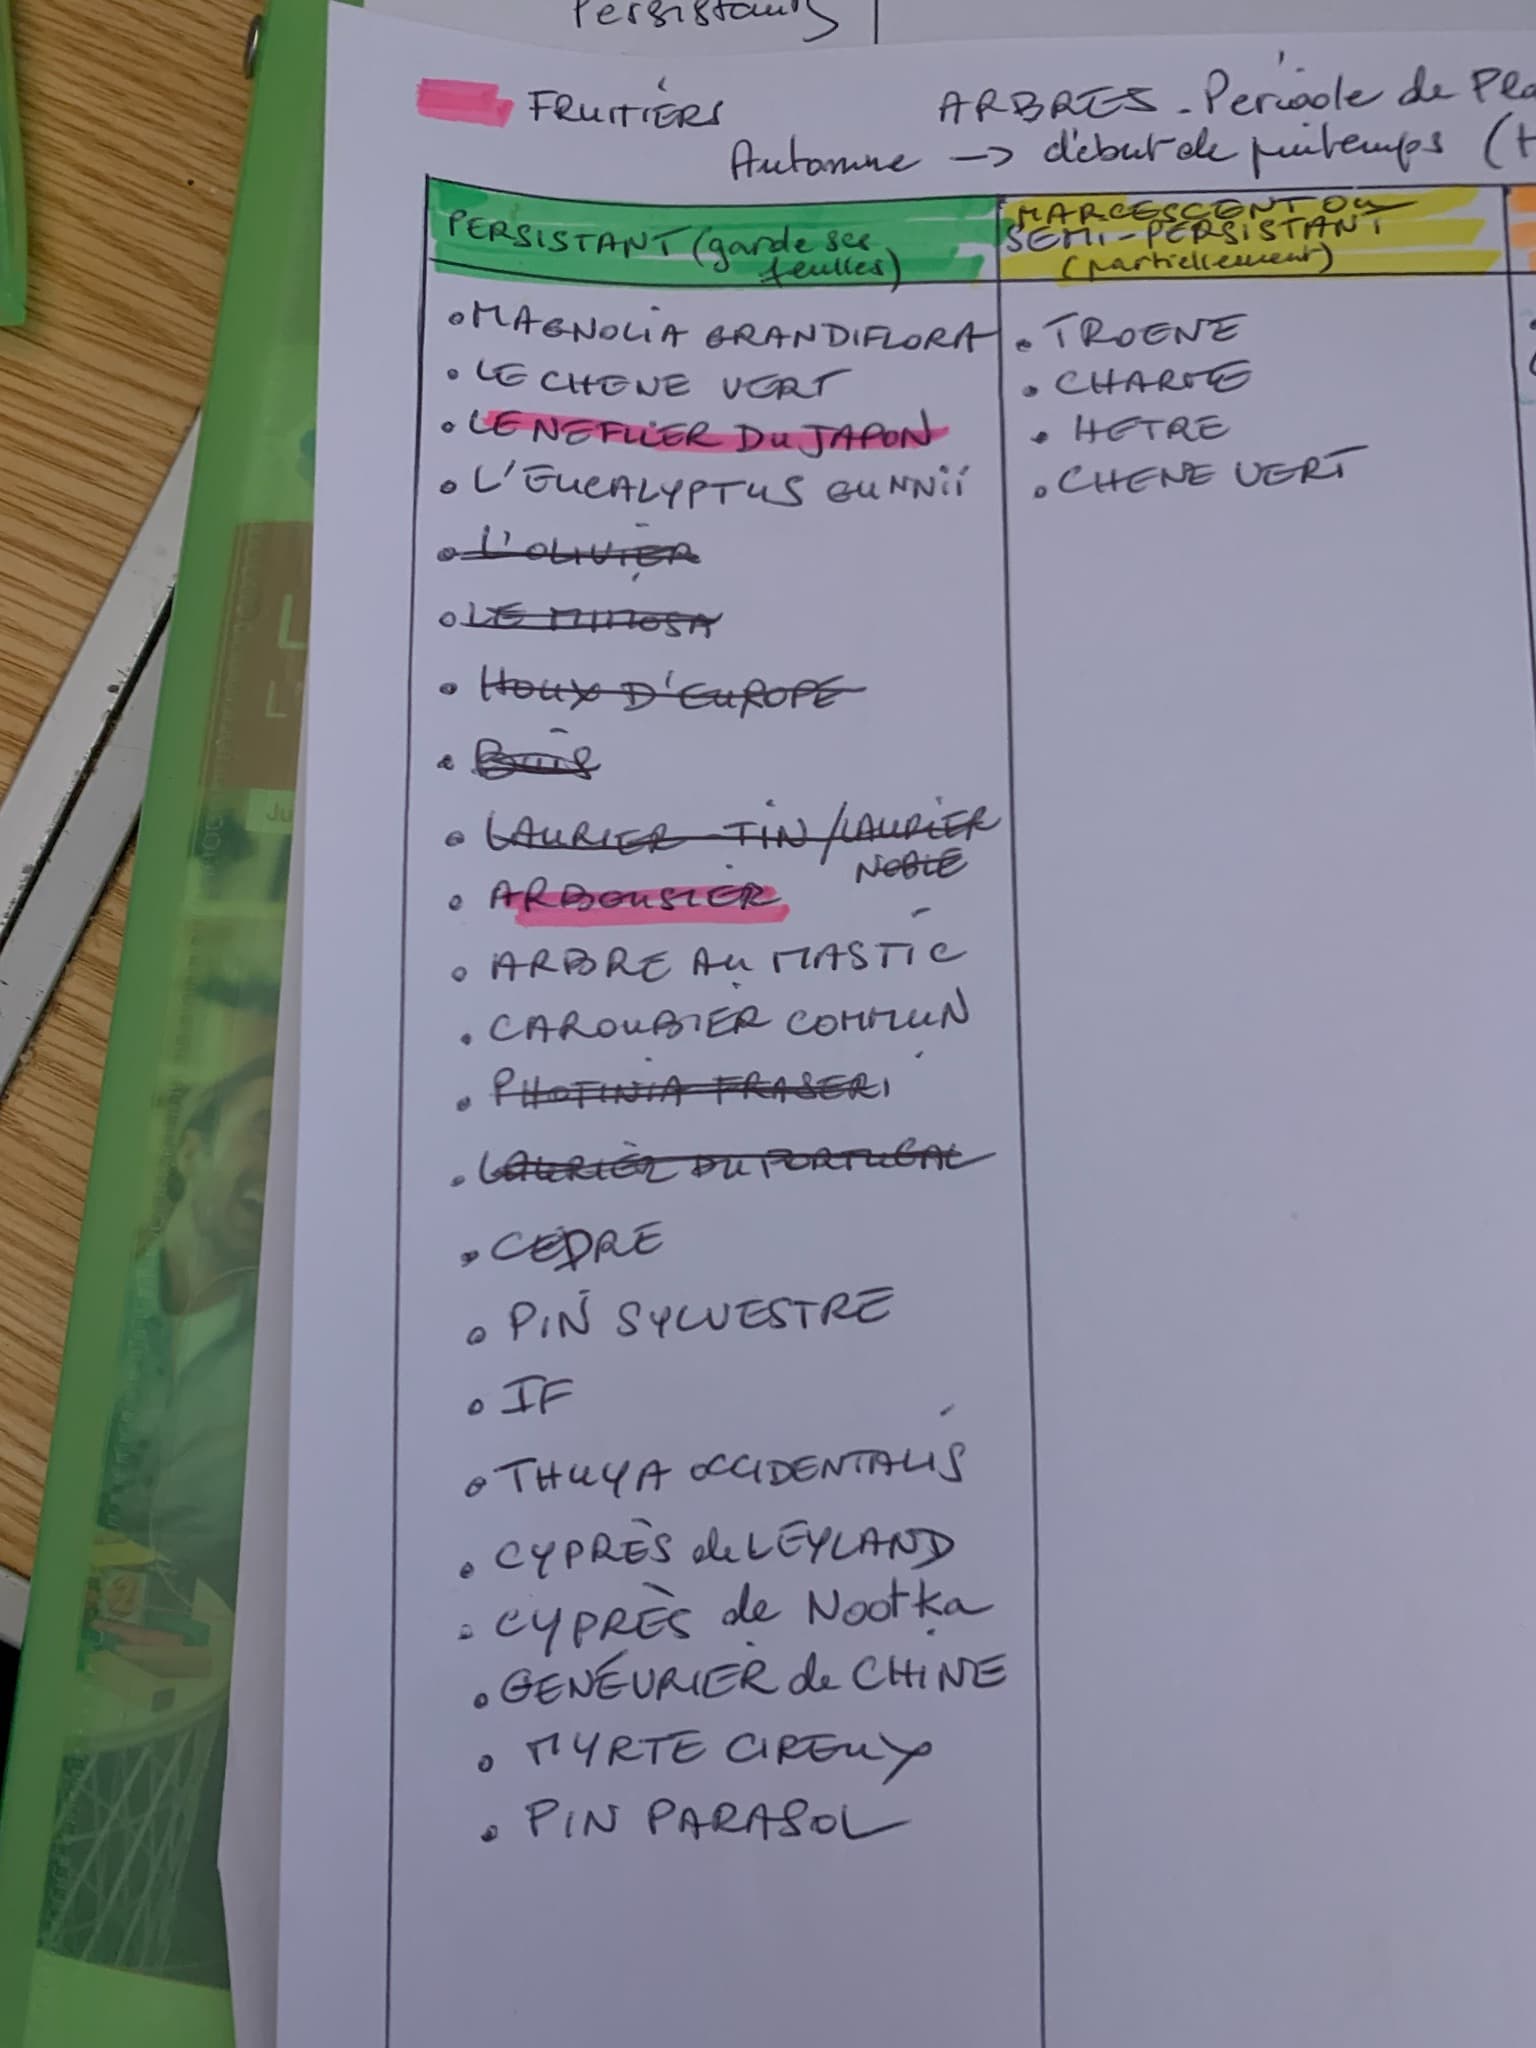 Persistants
FRUITIERS
ARBRES - Période de Pla
Automne → début de printemps (H
PERSISTANT (garde ses feuilles)
MARCESCENT OU
SEMI-PERSISTANT
(partiellement)
• MAGNOLIA GRANDIFLORA
• LE CHENE VERT
• LE NEFLIER DU JAPON
• L'EUCALYPTUS GUNNII
• L'OLIVIER
• LE MIMOSA
• HOUX D'EUROPE
• BUIS
• LAURIER-TIN / LAURIER
NOBLE
• ARBOUSIER
• ARBRE AU MASTIC
• CAROUBIER COMMUN
• PHOTINIA FRASERI
• LAURIER DU PORTUGAL
• CEDRE
• PIN SYLVESTRE
• IF
• THUYA OCCIDENTALIS
• CYPRÈS de LEYLAND
• CYPRÈS de Nootka
• GENÉVRIER de CHINE
• MYRTE CIREUX
• PIN PARASOL
• TROENE
• CHARME
• HETRE
• CHENE VERT